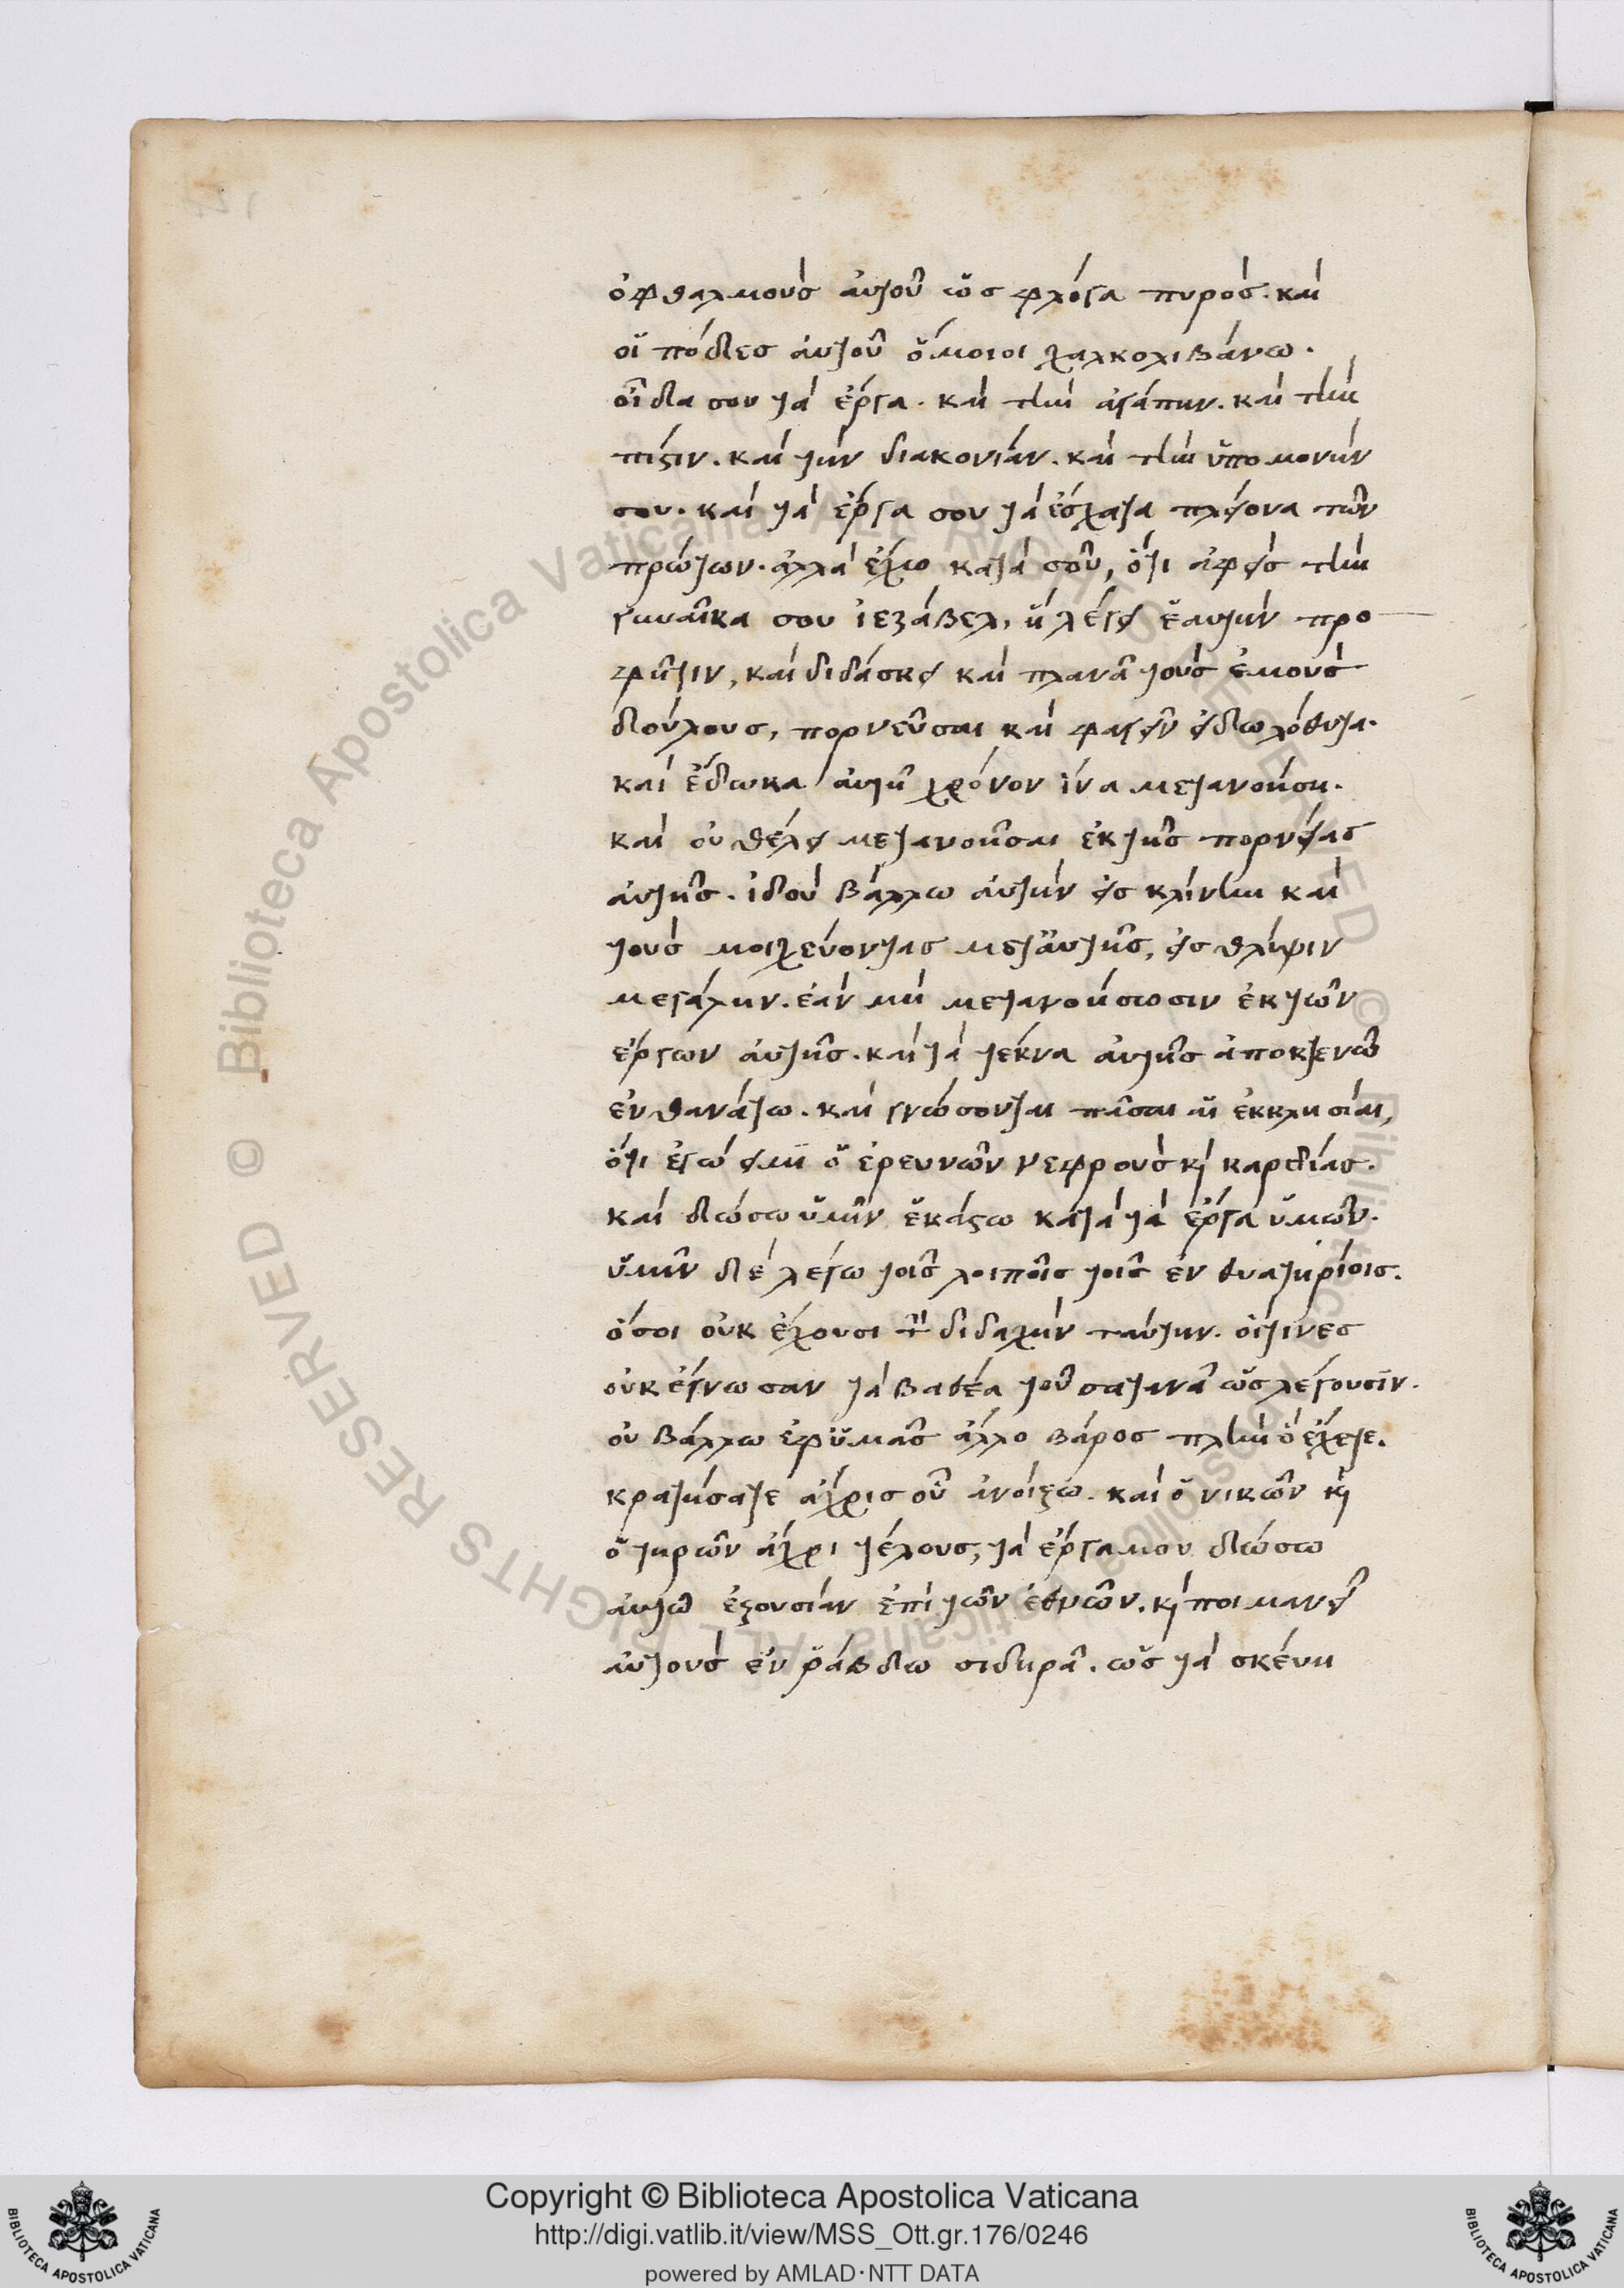 ὀφθαλμοὺς αὐτοῦ ὡς φλόγα πυρός. καὶ
οἱ πόδες αὐτοῦ ὅμοιοι χαλκολιβάνω.
οἶδα σου τὰ ἔργα. καὶ τὴν ἀγάπην. καὶ τὴν
πίστιν. καὶ τὴν διακονίαν. καὶ τὴν ὑπομονήν
σου. καὶ τὰ ἔργα σου τὰ ἔσχατα πλείονα τῶν
πρώτων. ἀλλὰ ἔχω κατὰ σοῦ, ὅτι ἀφεῖς τὴν
γυναῖκα σου ἰεζάβελ, ἣ λέγει ἑαυτὴν προ
φῆτιν, καὶ διδάσκει καὶ πλανᾶ τοὺς ἐμοὺς
δούλους, πορνεῦσαι καὶ φαγεῖν εἰδωλόθυτα.
καὶ ἔδωκα αὐτῆ χρόνον ἵνα μετανοήση.
καὶ οὐ θέλει μετανοῆσαι ἐκ τῆς πορνείας
αὐτῆς. ἰδοὺ βάλλω αὐτὴν εἰς κλίνην καὶ
τοὺς μοιχεύοντας μετ αὐτῆς, εἰς θλίψιν
μεγάλην. ἐὰν μὴ μετανοήσωσιν ἐκ τῶν
ἔργων αὐτῆς. καὶ τὰ τέκνα αὐτῆς ἀποκτενῶ
ἐν θανάτω. καὶ γνώσονται πᾶσαι αἱ ἐκκλησίαι,
ὅτι ἐγώ εἰμι ὁ ἐρευνῶν νεφροὺς κὶ καρδίας.
καὶ δώσω ὑμῖν ἑκάστω κατὰ τὰ ἔργα ὑμῶν.
ὑμῖν δὲ λέγω τοῖς λοιποῖς τοῖς ἐν θυατηρίοις.
ὅσοι οὐκ ἔχουσι τὴν διδαχὴν ταύτην. οἵτινες
οὐκ ἔγνωσαν τὰ βαθέα τοῦ σατανᾶ ὡς λέγουσιν.
οὐ βάλλω ἐφ ὑμᾶς ἄλλο βάρος πλὴν ὃ ἔχετε.
κρατήσατε ἄχρις οὗ ἀνοίξω. καὶ ὁ νικῶν κὶ
ὁ τηρῶν ἄχρι τέλους, τὰ ἔργα μου δώσω
αὐτῶ ἐξουσίαν ἐπὶ τῶν ἐθνῶν. κὶ ποιμανεῖ
αὐτοὺς ἐν ῥάβδω σιδηρᾶ. ὡς τὰ σκέυη
Copyright © Biblioteca Apostolica Vaticana
http://digi.vatlib.it/view/MSS_Ott.gr.176/0246
powered by AMLAD·NTT DATA
BIBLIOTECA APOSTOLICA VATICANA
BIBLIOTECA APOSTOLICA VATICANA
© Biblioteca Apostolica Vaticana ALL RIGHTS RESERVED
© Biblioteca Apostolica Vaticana ALL RIGHTS RESERVED